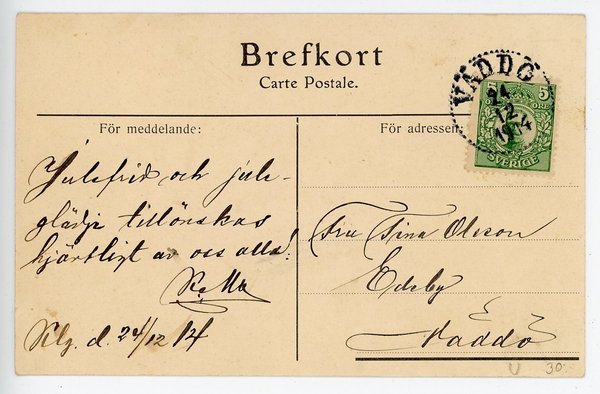 Brefkort
Carte Postale.
VÄDDÖ
24
12
1914
5
5
ÖRE
SVERIGE
För meddelande:
Julefrid och jule-
glädje tillönskas
hjärtligt av oss alla!
d. 24/12 14
För adressen:
Fru Tina Olsson
Edeby
Väddö
U 30: